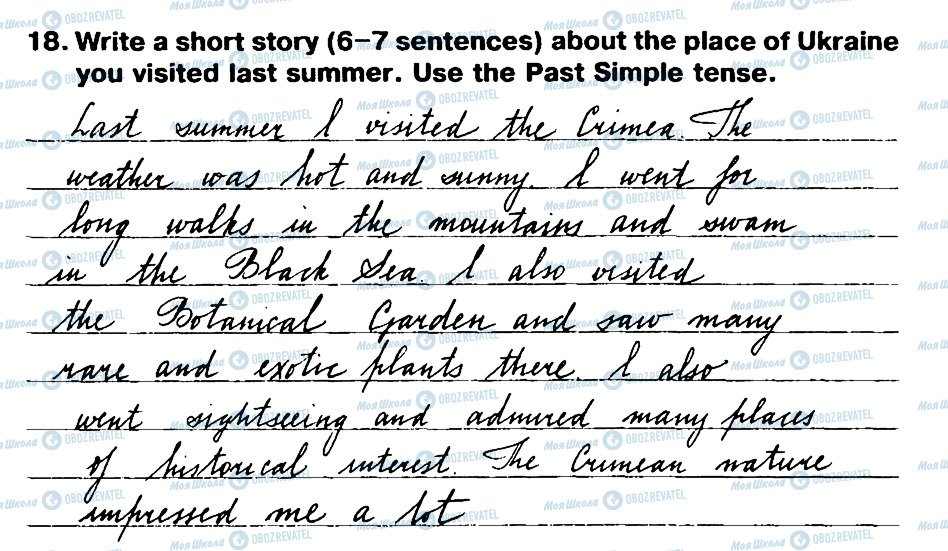 18. Write a short story (6–7 sentences) about the place of Ukraine
you visited last summer. Use the Past Simple tense.
Last summer I visited the Crimea. The
weather was hot and sunny. I went for
long walks in the mountains and swam
in the Black Sea. I also visited
the Botanical Garden and saw many
rare and exotic plants there. I also
went sightseeing and admired many places
of historical interest. The Crimean nature
impressed me a lot